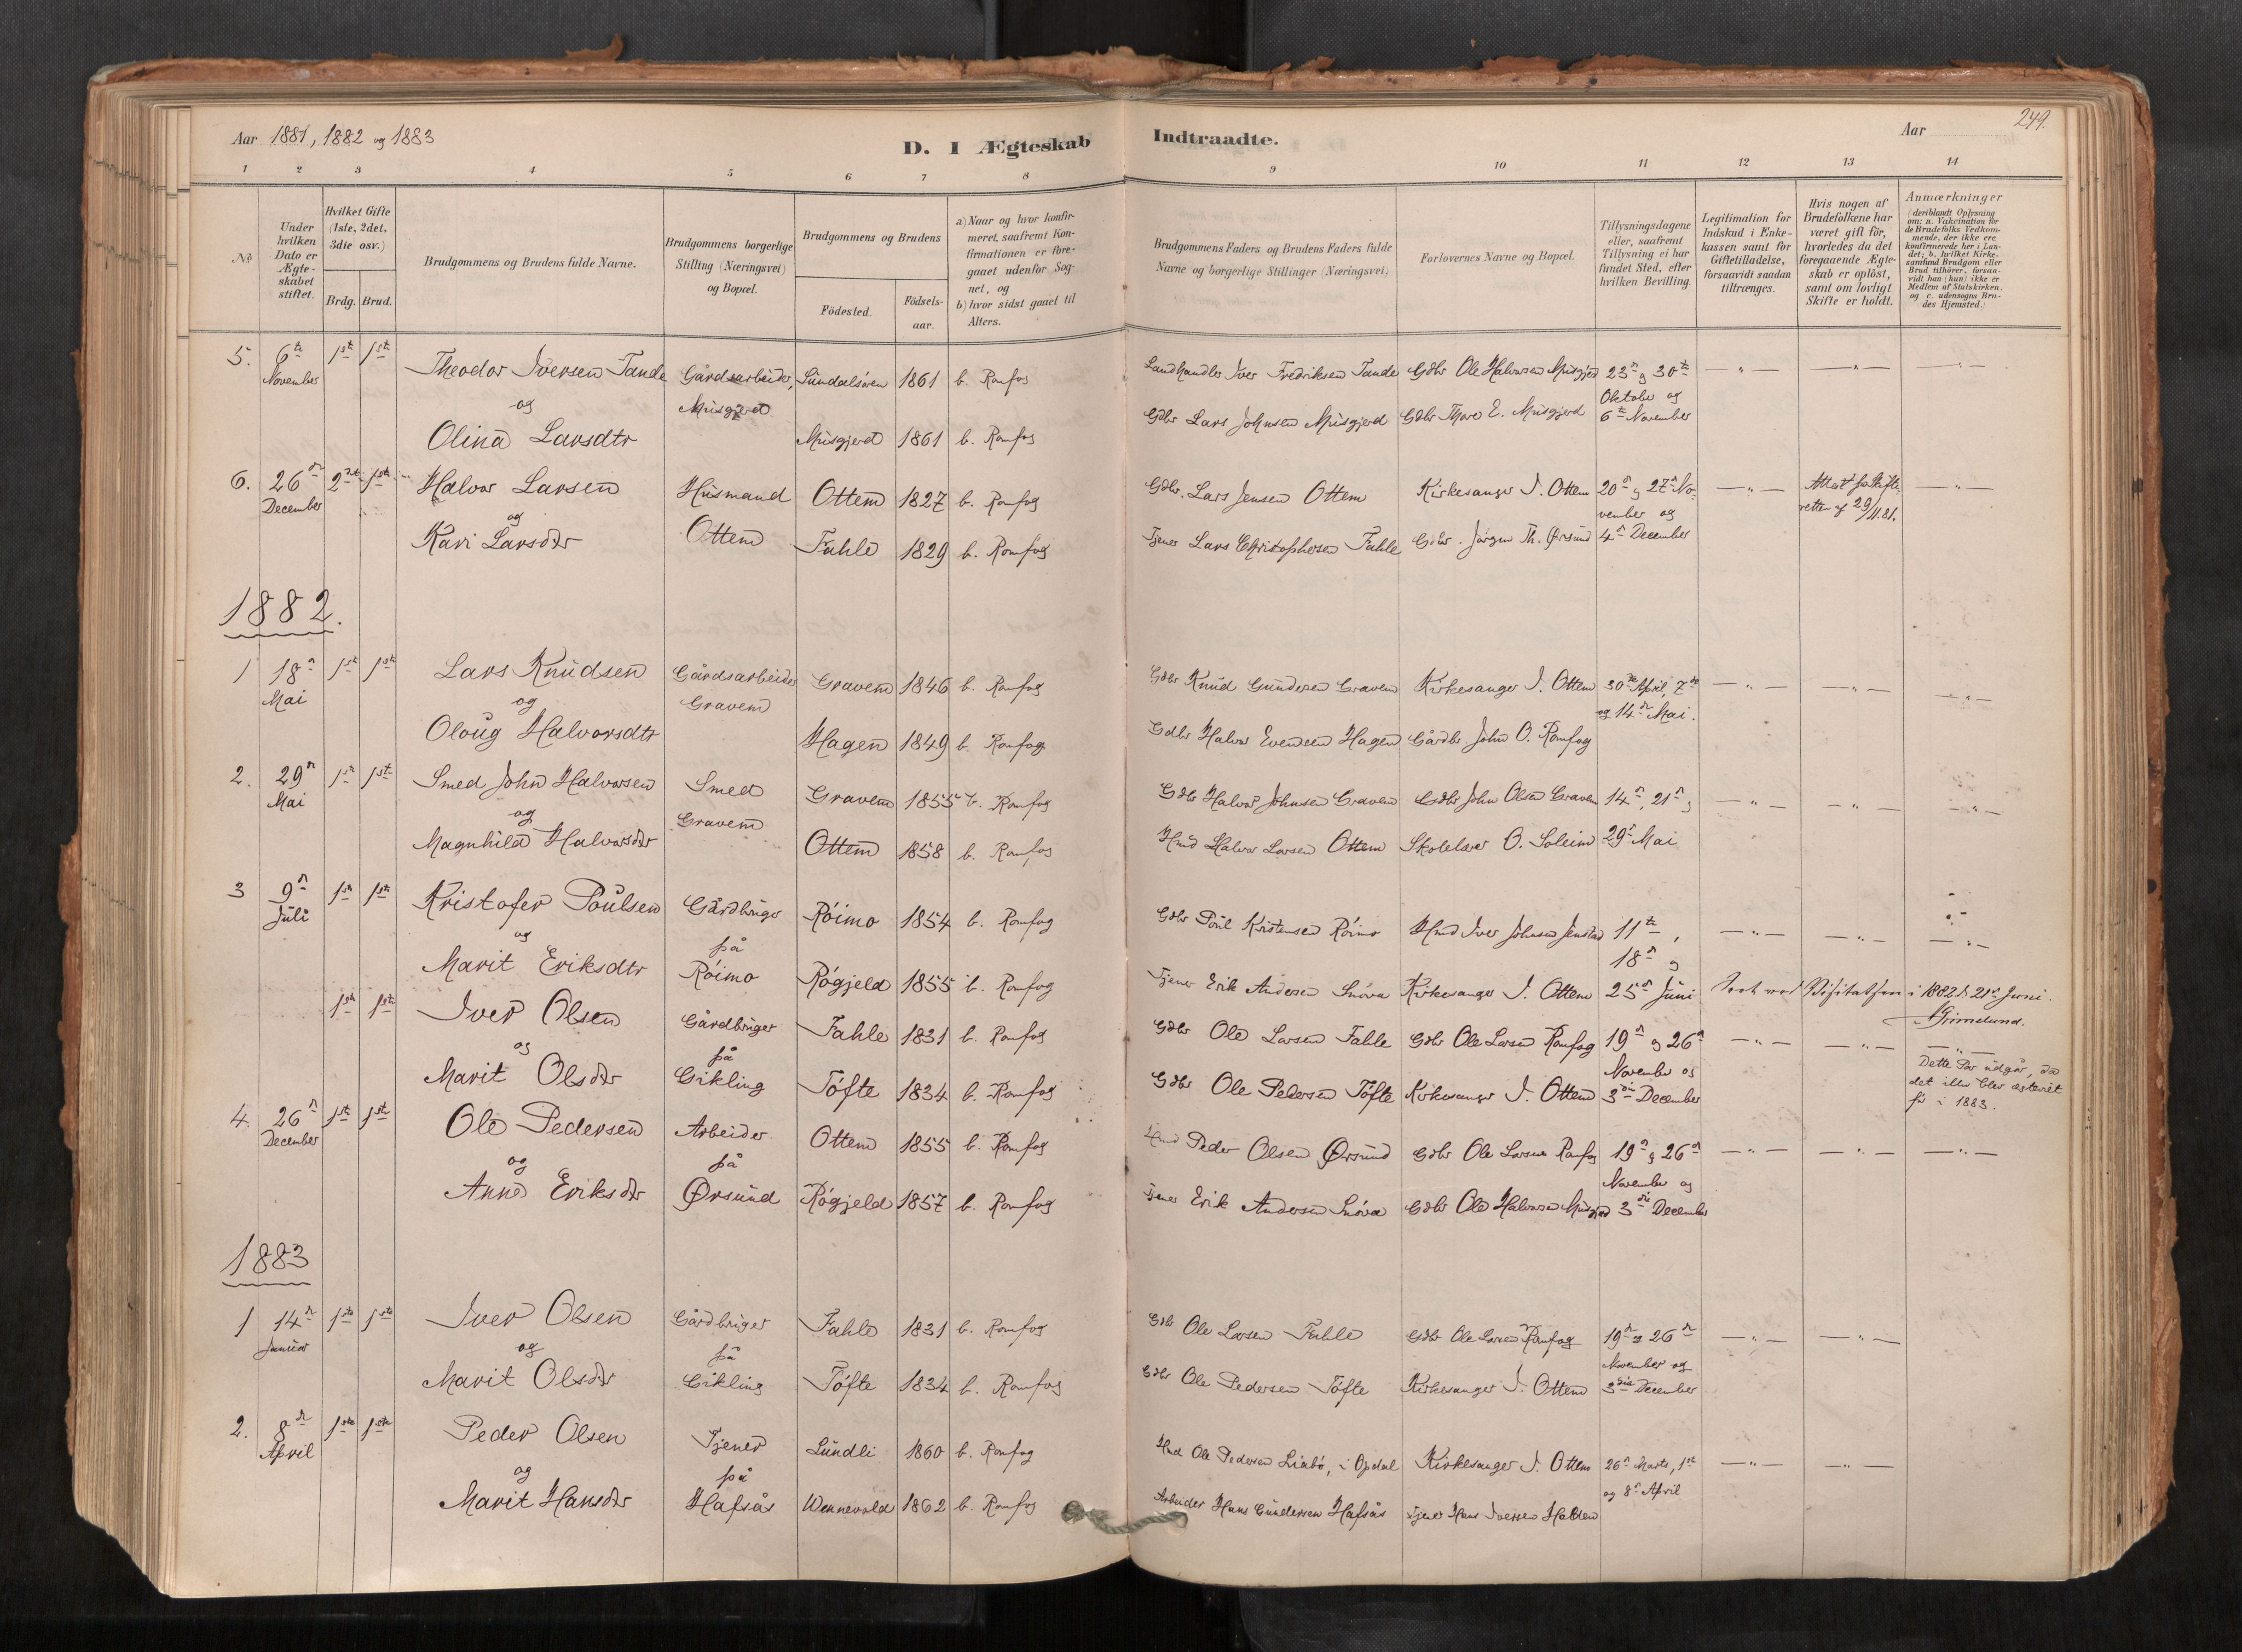 Aar 1881, 1882 og 1883
D. I Ægteskab Indtraadte.
Aar
249.
1 2 3 4 5 6 7 8 9 10 11 12 13 14
No
Under hvilken Dato er Ægteskabet stiftet.
Hvilket Gifte (1ste, 2det, 3die osv.)
Brdg. Brud.
Brudgommens og Brudens fulde Navne.
Brudgommens borgerlige Stilling (Næringsvei) og Bopæl.
Brudgommens og Brudens
Födested.
Födsels-aar.
a) Naar og hvor konfir-
meret, saafremt Kon-
firmationen er fore-
gaaet udenfor Sog-
net, og
b) hvor sidst gaaet til
Alters.
Brudgommens Faders og Brudens Faders fulde
Navne og borgerlige Stillinger (Næringsvei)
Forlovernes Navne og Bopæl.
Tillysningsdagene
eller, saafremt
Tillysning ei har
fundet Sted, efter
hvilken Bevilling.
Legitimation for
Indskud i Enke-
kassen samt for
Giftetilladelse,
forsaavidt saadan
tiltrænges.
Hvis nogen af
Brudefolkene har
været gift för,
hvorledes da det
foregaaende Ægte-
skab er oplöst,
samt om lovligt
Skifte er holdt.
Anmærkninger
(deriblandt Oplysning
om: a. Vakcination for
de Brudefolks Vedkom-
mende, der ikke ere
konfirmerede her i Lan-
det; b. hvilket Kirke-
samfund Brudgom eller
Brud tilhörer, forsaa-
vidt han (hun) ikke er
Medlem af Statskirken,
og c. udensogns Bru-
des Hjemsted.)
5. 6te November 1ste 1ste Theodor Iversen Tande Gårdsarbeider, Sundalsören 1861 b. Romfog Landhandler Iver Fredriksen Tande Gdbr Ole Halvorsen Musgjerd 23de og 30te
og Musgjerd Oktober og
Olina Larsdtr Musgjerd 1861 b. Romfog Gdbr Lars Johnsen Musgjerd Gdbr Thore E. Musgjerd 6te November
6. 26de December 2det 1ste Halvor Larsen Husmand Ottem 1827 b. Romfog Gdbr. Lars Jensen Ottem Kirkesanger I. Ottem 20de og 27de No- Attest fra Skifte-
og vember og retten af 29/11.81.
Kari Larsdtr Ottem Fahle 1829 b. Romfog Tjener Lars Christophersen Fahle Gdbr. Jörgen Th. Ørsund 4de December
1882.
1 18de Mai 1ste 1ste Lars Knudsen Gårdsarbeider Gravem 1846 b. Romfog Gdbr Knud Gundersen Gravem Kirkesanger I. Ottem 30te April, 7de
og Gravem og 14de Mai.
Oloug Halvorsdtr Hagen 1849 b. Romfog Gdbr Halvor Evensen Hagen Gårdbr John O. Romfog
2. 29de Mai 1ste 1ste Smed John Halvorsen Smed Gravem 1855 b. Romfog Gdbr Halvor Johnsen Gravem Gdbr John Olsen Gravem 14de, 21de og
og Gravem
Magnhild Halvorsdtr Ottem 1858 b. Romfog Hmd Halvor Larsen Ottem Skolelærer O. Soleim 29de Mai
3 9de Juli 1ste 1ste Kristofer Poulsen Gårdbruger Röimo 1854 b. Romfog Gdbr Poul Kristensen Röimo Hmd Iver Johnsen Jenstad 11te,
og på 18de og
Marit Eriksdtr Röimo Rögjeld 1855 b. Romfog Tjener Erik Andersen Snöva Kirkesanger I. Ottem 25de Juni
Seet ved Visitatsen i 1882 d. 21de Juni.
Grimelund.
1ste 1ste Iver Olsen Gårdbruger Fahle 1831 b. Romfog Gdbr Ole Larsen Fahle Gdbr Ole Larsen Romfog 19de og 26de
og på November og
Marit Olsdtr Gikling Töfte 1834 b. Romfog Gdbr Ole Pedersen Töfte Kirkesanger I. Ottem 3die December
Dette Par udgår, da
det ikke blev ægteviet
för i 1883.
4. 26de December 1ste 1ste Ole Pedersen Arbeider Ottem 1855 b. Romfog Hmd Peder Olsen Ørsund Gdbr Ole Larsen Romfog 19de og 26de
og på November og
Anne Eriksdtr Ørsund Rögjeld 1857 b. Romfog Tjener Erik Andersen Snöva Gdbr Ole Halvorsen Musgjerd 3die December
1883
1 14de Januar 1ste 1ste Iver Olsen Gårdbruger Fahle 1831 b. Romfog Gdbr Ole Larsen Fahle Gdbr Ole Larsen Romfog 19de og 26de
og på November og
Marit Olsdtr Gikling Töfte 1834 b. Romfog Gdbr Ole Pedersen Töfte Kirkesanger I. Ottem 3die December
2. 8de April 1ste 1ste Peder Olsen Tjener Lundli 1860 b. Romfog Hmd Ole Pedersen Liabö, i Opdal Kirkesanger I. Ottem 26de Marts, 1ste
og på og 8de April
Marit Hansdtr Hafsås Wennevold 1862 b. Romfog Arbeider Hans Gundersen Hafsås Tjener Hans Iversen Holden